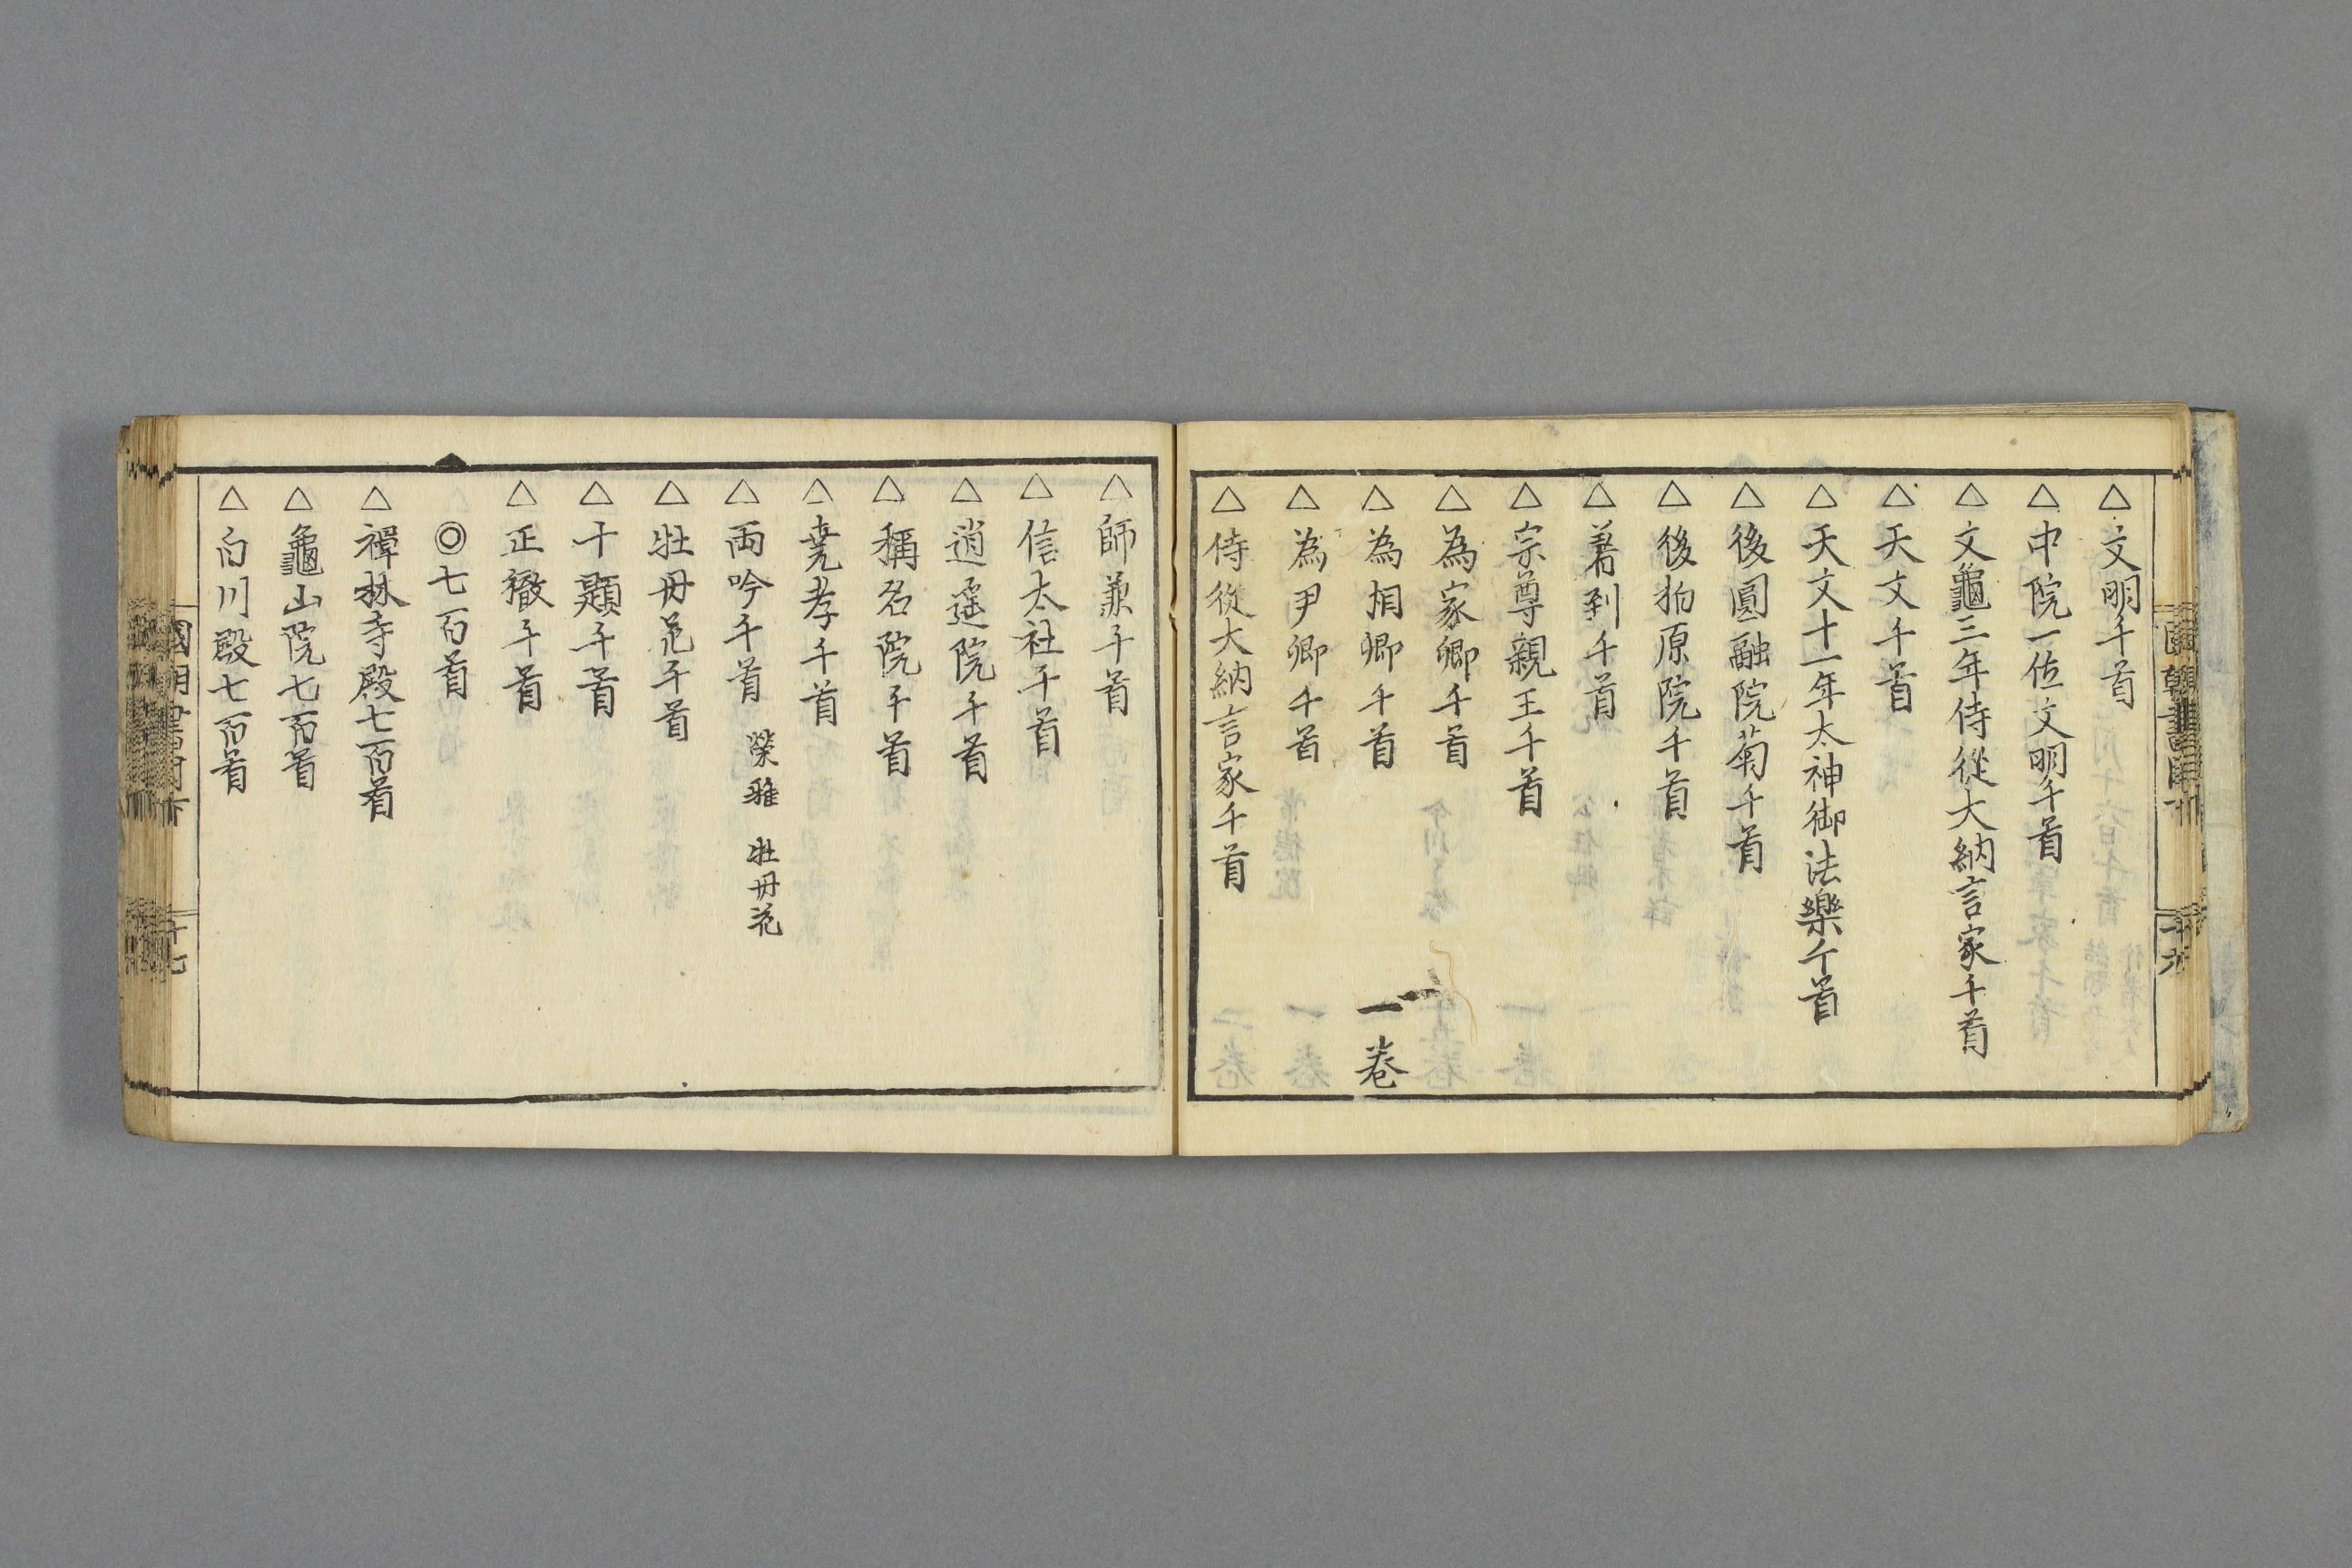 △文明千首
△中院一位文明千首
△文龜三年侍從大納言家千首
△天文千首
△天文十一年太神御法樂千首
△後圓融院菊千首
△後柏原院千首
△着到千首
△宗尊親王千首
△為家卿千首
△為相卿千首 一卷
△為尹卿千首
△侍從大納言家千首
△師兼千首
△信太社千首
△逍遥院千首
△稱名院千首
△堯孝千首
△両吟千首 榮雅 牡丹花
△牡丹花千首
△十題千首
△正徹千首
◎七百首
△禪林寺殿七百首
△龜山院七百首
△白川殿七百首